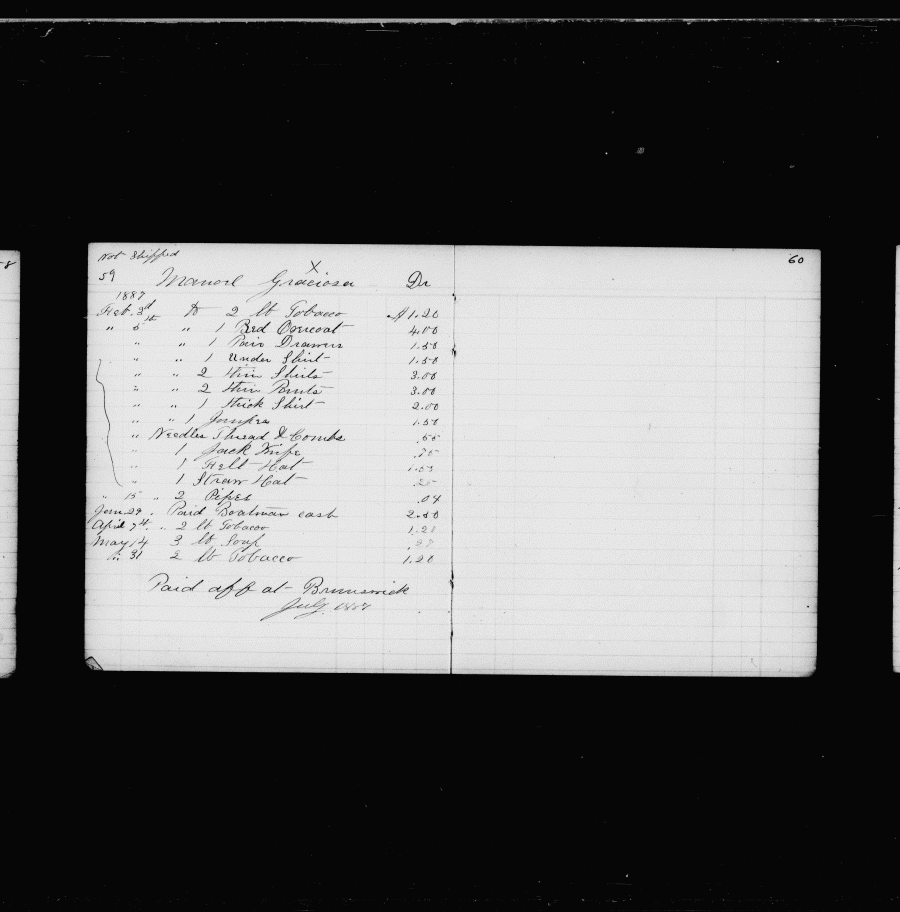 8
Not Shipped
59 Manoel X Graciosa Dr
1887
Feb. 3d to 2 lb Tobacco $1.20
" 5th " 1 Red Overcoat 4.00
" " 1 Pair Drawers 1.50
" " 1 Under Shirt 1.50
" " 2 Thin Shirts 3.00
" " 2 Thin Pants 3.00
" " 1 Thick Shirt 2.00
" " 1 Jumper 1.50
" Needles Thread & Combs
" 1 Jack Knife .75
" 1 Felt Hat
" 1 Straw Hat .25
" 15 " 2 Pipes .04
29 " Paid Boatman cash 2.50
April 7th " 2 lb Tobacco 1.20
May 14 3 lb Soap
" 31 2 lb Tobacco 1.20
Paid off at Brunswick
July 1887
60